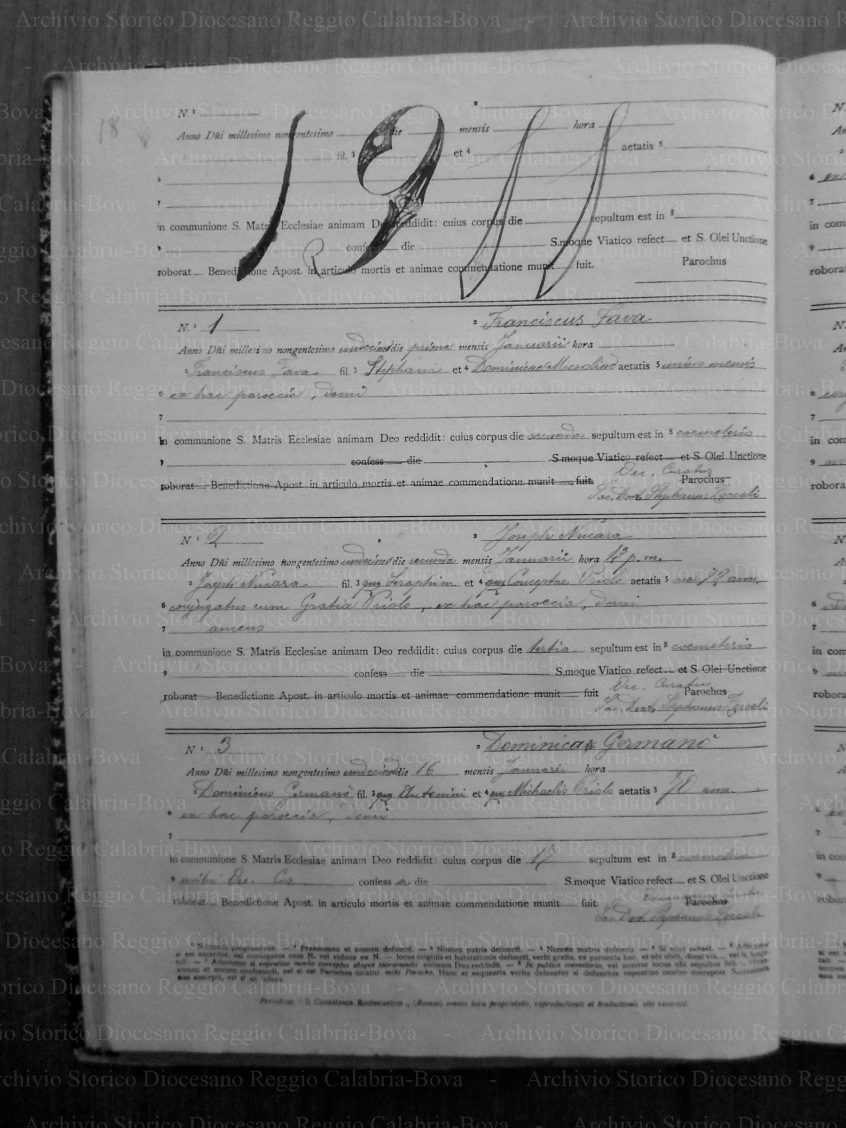 18
1911
N. ¹
Anno Dñi millesimo nongentesimo die mensis hora
fil. ³ et ⁴ aetatis ⁵
⁶
⁷
in communione S. Matris Ecclesiae animam Deo reddidit: cuius corpus die sepultum est in ⁸
⁹ confess die S.moque Viatico refect et S. Olei Unctione
roborat Benedictione Apost. in articulo mortis et animae commendatione munit fuit. Parochus
N. ¹ 1 ² Franciscus Fava
Anno Dñi millesimo nongentesimo undecimo die prima mensis Januarii hora
Franciscus Fava fil. ³ Stephani et ⁴ Dominicae Musolino aetatis ⁵ unius mensis
⁶ ex hac paroecia, domi
⁷
in communione S. Matris Ecclesiae animam Deo reddidit: cuius corpus die secunda sepultum est in ⁸ coemeterio
⁹ confess die S.moque Viatico refect et S. Olei Unctione
Oec. Curatus
roborat Benedictione Apost. in articulo mortis et animae commendatione munit fuit Parochus
Sac. Doct. Stephanus
N. ¹ 2 ² Joseph Nucara
Anno Dñi millesimo nongentesimo undecimo die secunda mensis Januarii hora 4ª p.m.
² Joseph Nucara fil. ³ qm Seraphim et ⁴ qm Conceptae Priolo aetatis ⁵ suae 72 ann.
⁶ conjugatus cum Gratia Priolo, ex hac paroecia, domi
⁷ amens
in communione S. Matris Ecclesiae animam Deo reddidit: cuius corpus die tertia sepultum est in ⁸ coemeterio
⁹ confess die S.moque Viatico refect et S. Olei Unctione
Oec. Curatus
roborat Benedictione Apost. in articulo mortis et animae commendatione munit fuit Parochus
Sac. Doct. Stephanus
N. ¹ 3 ² Dominicus Germanò
Anno Dñi millesimo nongentesimo undecimo die 16 mensis Januarii hora
Dominicus Germanò fil. ³ qm Antonini et ⁴ qm Michaelis Priolo aetatis ⁵ 70 ann.
⁶ ex hac paroecia, domi
⁷
in communione S. Matris Ecclesiae animam Deo reddidit: cuius corpus die 17 sepultum est in ⁸ coemeterio
⁹ mihi Oec. Cur. confess die S.moque Viatico refect et S. Olei Unctione
roborat Benedictione Apost. in articulo mortis et animae commendatione munit fuit Parochus
Sac. Doct. Stephanus
¹ Numerus progressivus. — ² Praenomen et nomen defuncti. — ³ Nomen patris defuncti. — ⁴ Nomen matris defuncti.
Periodicus "Il Consulente Ecclesiastico" (Romae) omnia iura proprietatis, reproductionis et traductionis sibi vindicat.
Archivio Storico Diocesano Reggio Calabria-Bova